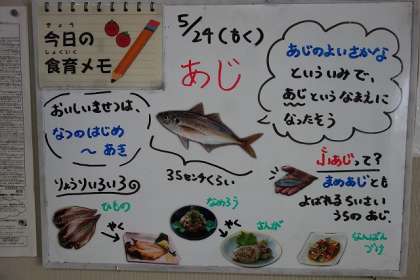 きょう
今日の
しょくいく
食育メモ
5/24(もく)
あじ
あじのよいさかな
といういみで、
あじというなまえに
なったそう
おいしいきせつは、
なつのはじめ
～あき
35センチくらい
りょうりいろいろ
ひもの
やく
なめろう
やく
さんが
なんばん
づけ
小あじって?
まめあじとも
よばれるちいさい
うちのあじ。